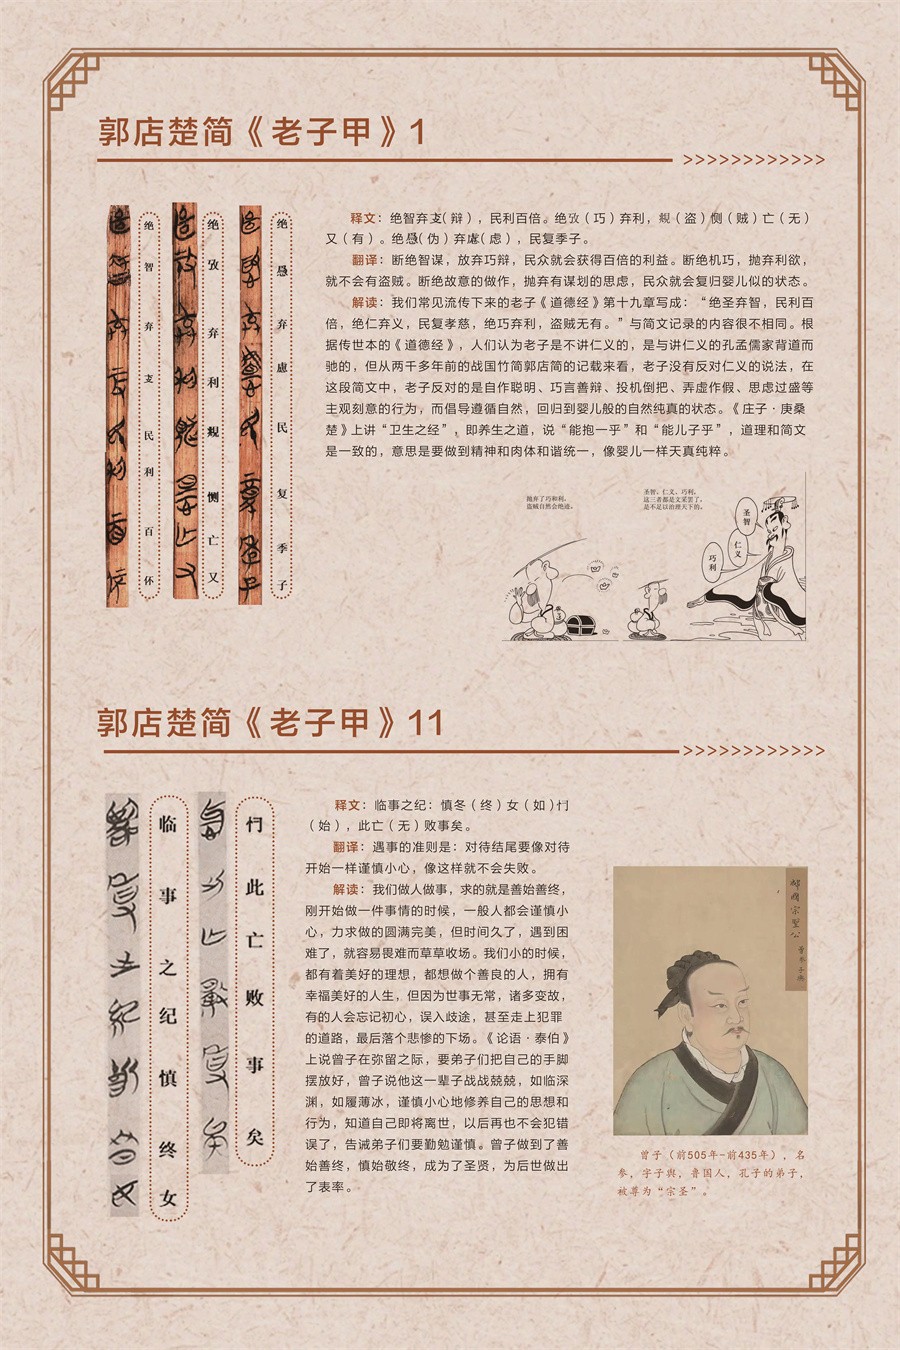 郭店楚简《老子甲》1
>>>>>>>>>>>>
绝智弃支民利百伓
绝攷弃利覝恻亡又
绝愚弃慮民复季子
释文：绝智弃支（辩），民利百倍。绝攷（巧）弃利，覝（盗）恻（贼）亡（无）
又（有）。绝愚（伪）弃慮（虑），民复季子。
翻译：断绝智谋，放弃巧辩，民众就会获得百倍的利益。断绝机巧，抛弃利欲，
就不会有盗贼。断绝故意的做作，抛弃有谋划的思虑，民众就会复归婴儿似的状态。
解读：我们常见流传下来的老子《道德经》第十九章写成：“绝圣弃智，民利百
倍，绝仁弃义，民复孝慈，绝巧弃利，盗贼无有。”与简文记录的内容很不相同。根
据传世本的《道德经》，人们认为老子是不讲仁义的，是与讲仁义的孔孟儒家背道而
驰的，但从两千多年前的战国竹简郭店简的记载来看，老子没有反对仁义的说法，在
这段简文中，老子反对的是自作聪明、巧言善辩、投机倒把、弄虚作假、思虑过盛等
主观刻意的行为，而倡导遵循自然，回归到婴儿般的自然纯真的状态。《庄子·庚桑
楚》上讲“卫生之经”，即养生之道，说“能抱一乎”和“能儿子乎”，道理和简文
是一致的，意思是要做到精神和肉体和谐统一，像婴儿一样天真纯粹。
抛弃了巧和利，
盗贼自然会绝迹。
圣智、仁义、巧利，
这三者都是文采罢了，
是不足以治理天下的。
圣智
仁义
巧利
郭店楚简《老子甲》11
>>>>>>>>>>>>
临事之纪慎终女
忊此亡败事矣
释文：临事之纪：慎冬（终）女（如）忊
（始），此亡（无）败事矣。
翻译：遇事的准则是：对待结尾要像对待
开始一样谨慎小心，像这样就不会失败。
解读：我们做人做事，求的就是善始善终，
刚开始做一件事情的时候，一般人都会谨慎小
心，力求做的圆满完美，但时间久了，遇到困
难了，就容易畏难而草草收场。我们小的时候，
都有着美好的理想，都想做个善良的人，拥有
幸福美好的人生，但因为世事无常，诸多变故，
有的人会忘记初心，误入歧途，甚至走上犯罪
的道路，最后落个悲惨的下场。《论语·泰伯》
上说曾子在弥留之际，要弟子们把自己的手脚
摆放好，曾子说他这一辈子战战兢兢，如临深
渊，如履薄冰，谨慎小心地修养自己的思想和
行为，知道自己即将离世，以后再也不会犯错
误了，告诫弟子们要勤勉谨慎。曾子做到了善
始善终，慎始敬终，成为了圣贤，为后世做出
了表率。
郕國宗聖公
曾子（前505年-前435年），名
参，字子舆，鲁国人，孔子的弟子，
被尊为“宗圣”。